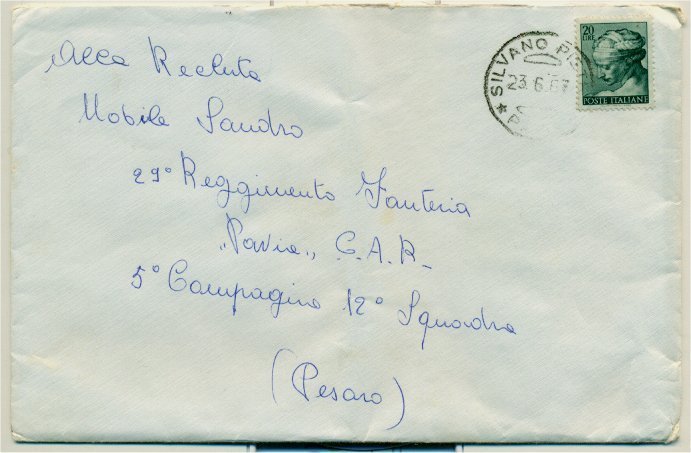 Alla Recluta
Nobile Sandro
29° Reggimento Fanteria
„Pavia„ C.A.R.
5° Compagnia 12° Squadra
(Pesaro)
SILVANO
23.6.67
20
LIRE
POSTE ITALIANE